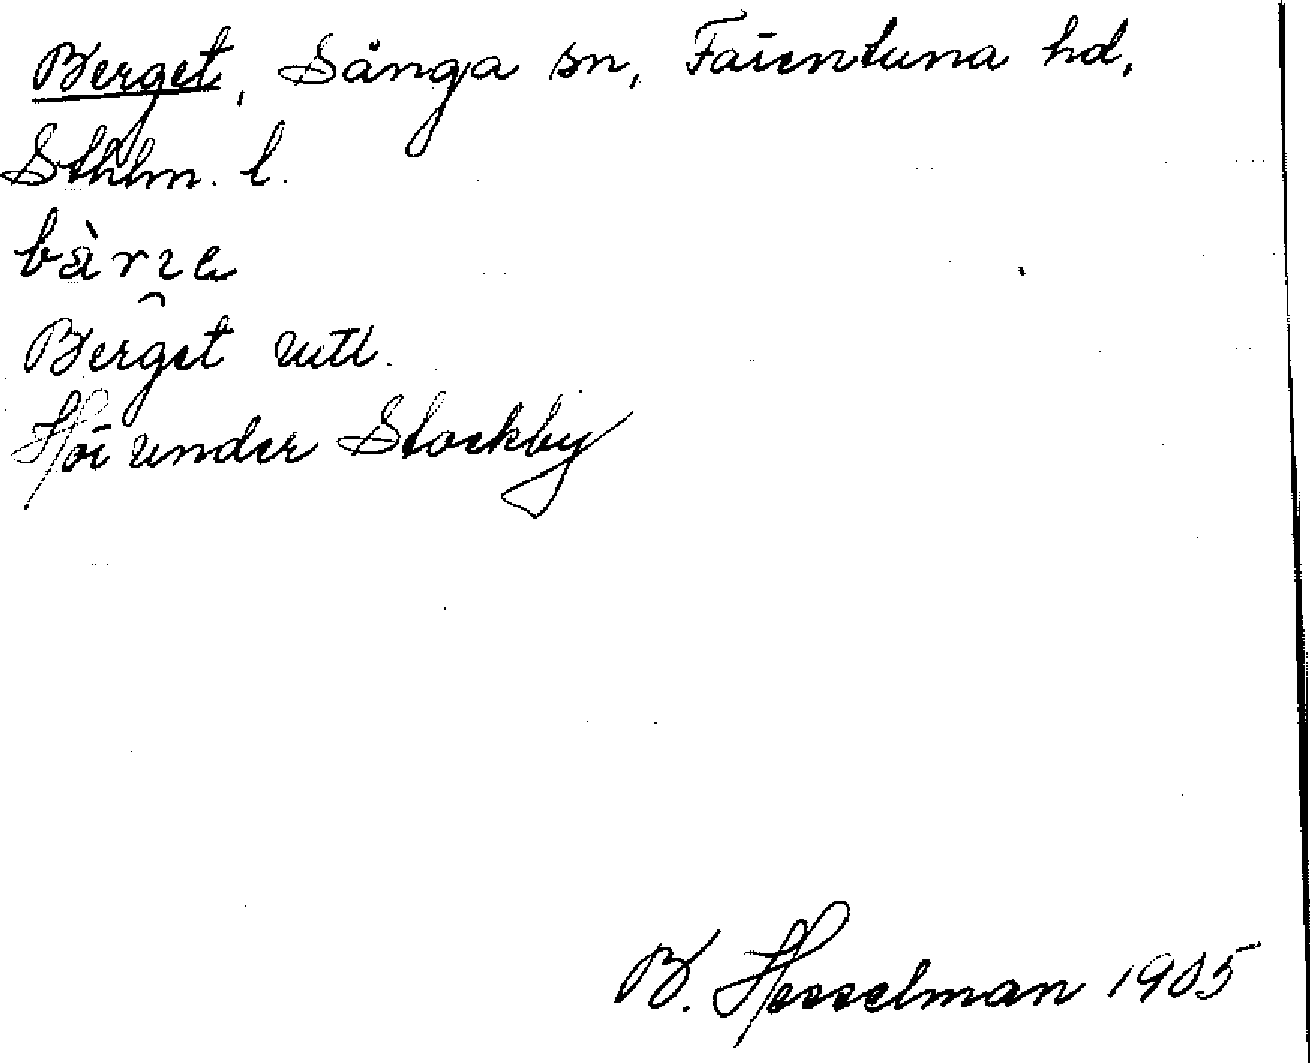 Berget, Sånga sn, Färentuna hd,
Sthlm. l.
Berget utt.
Hör under Stockby
B. Hesselman 1905